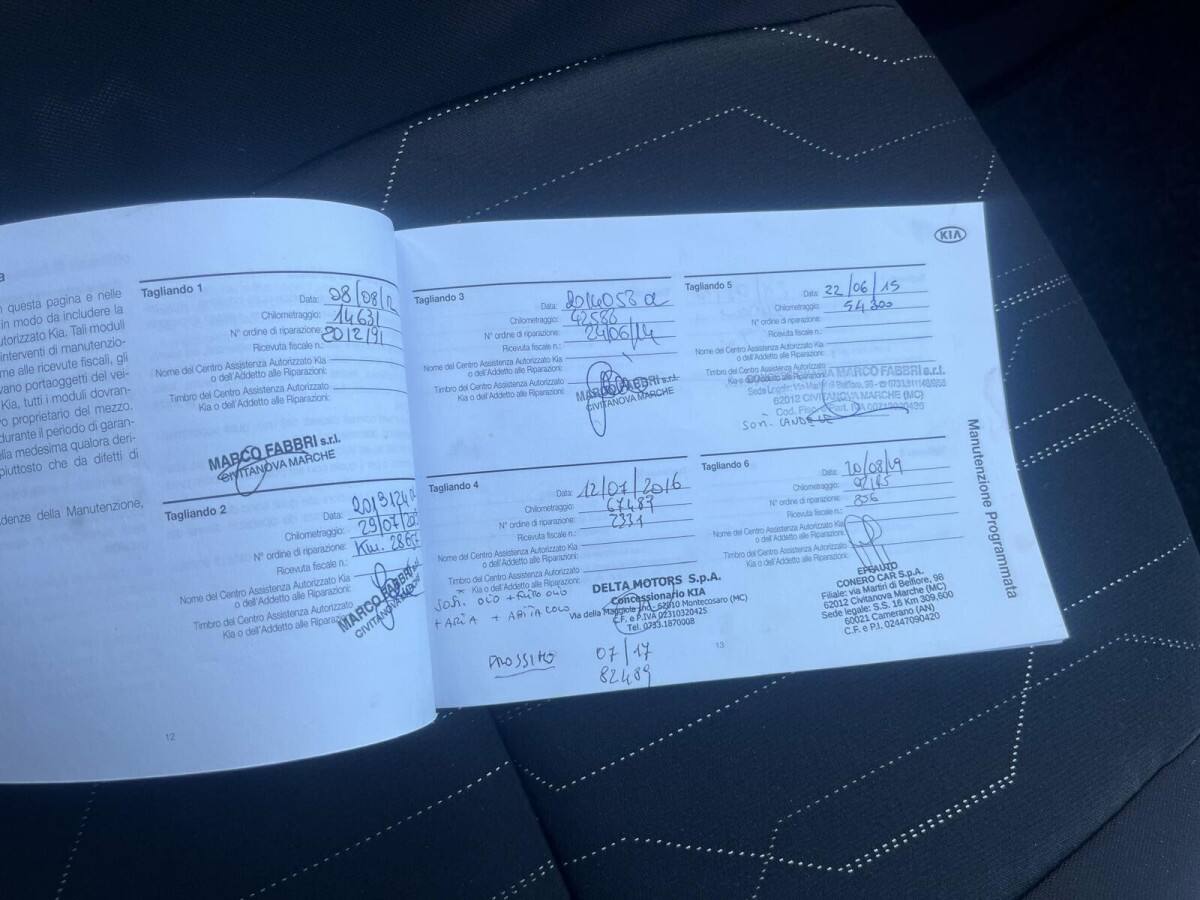 a
questa pagina e nelle
in modo da includere la
utorizzato Kia. Tali moduli
interventi di manutenzio-
me alle ricevute fiscali, gli
vano portaoggetti del vei-
Kia, tutti i moduli dovran-
vo proprietario del mezzo.
durante il periodo di garan-
ella medesima qualora deri-
piuttosto che da difetti di
denze della Manutenzione,
Tagliando 1
Data: 08/08/12
Chilometraggio: 14631
N° ordine di riparazione:
Ricevuta fiscale n.:
Nome del Centro Assistenza Autorizzato Kia
o dell'Addetto alle Riparazioni:
Timbro del Centro Assistenza Autorizzato
Kia o dell'Addetto alle Riparazioni:
MARCO FABBRI s.r.l.
CIVITANOVA MARCHE
Tagliando 2
Data:
Chilometraggio: 29/07/
N° ordine di riparazione: Km.
Ricevuta fiscale n.:
Nome del Centro Assistenza Autorizzato Kia
o dell'Addetto alle Riparazioni:
Timbro del Centro Assistenza Autorizzato
Kia o dell'Addetto alle Riparazioni:
MARCO FABBRI s.r.l.
CIVITANOVA MARCHE
12
Tagliando 3
Data:
Chilometraggio: 42586
N° ordine di riparazione: 24/06/14
Ricevuta fiscale n.:
Nome del Centro Assistenza Autorizzato Kia
o dell'Addetto alle Riparazioni:
Timbro del Centro Assistenza Autorizzato
Kia o dell'Addetto alle Riparazioni:
MARCO FABBRI s.r.l.
CIVITANOVA MARCHE
Tagliando 4
Data: 12/07/2016
Chilometraggio: 67487
N° ordine di riparazione: 2331
Ricevuta fiscale n.:
Nome del Centro Assistenza Autorizzato Kia
o dell'Addetto alle Riparazioni:
Timbro del Centro Assistenza Autorizzato
Kia o dell'Addetto alle Riparazioni:
DELTA MOTORS S.p.A.
Concessionario KIA
62010 Montecosaro (MC)
C.F. e P.IVA 02310320425
Tel. 0733.1870008
SOST. OLIO + FILTRO OLIO
+ ARIA +
PROSSIMO 07/17
82489
13
KIA
Tagliando 5
Data: 22/06/15
Chilometraggio: 54.300
N° ordine di riparazione:
Ricevuta fiscale n.:
Nome del Centro Assistenza Autorizzato Kia
o dell'Addetto alle Riparazioni:
Timbro del Centro Assistenza Autorizzato
Kia o dell'Addetto alle Riparazioni:
MARCO FABBRI s.r.l.
62012 CIVITANOVA MARCHE (MC)
SOST. CANDELE
Tagliando 6
Data:
Chilometraggio:
N° ordine di riparazione: 856
Ricevuta fiscale n.:
Nome del Centro Assistenza Autorizzato Kia
o dell'Addetto alle Riparazioni:
Timbro del Centro Assistenza Autorizzato
Kia o dell'Addetto alle Riparazioni:
EPEAUTO
CONERO CAR S.p.A.
Filiale: via Martiri di Belfiore, 98
62012 Civitanova Marche (MC)
Sede legale: S.S. 16 Km 309,600
60021 Camerano (AN)
C.F. e P.I. 02447090420
Manutenzione Programmata